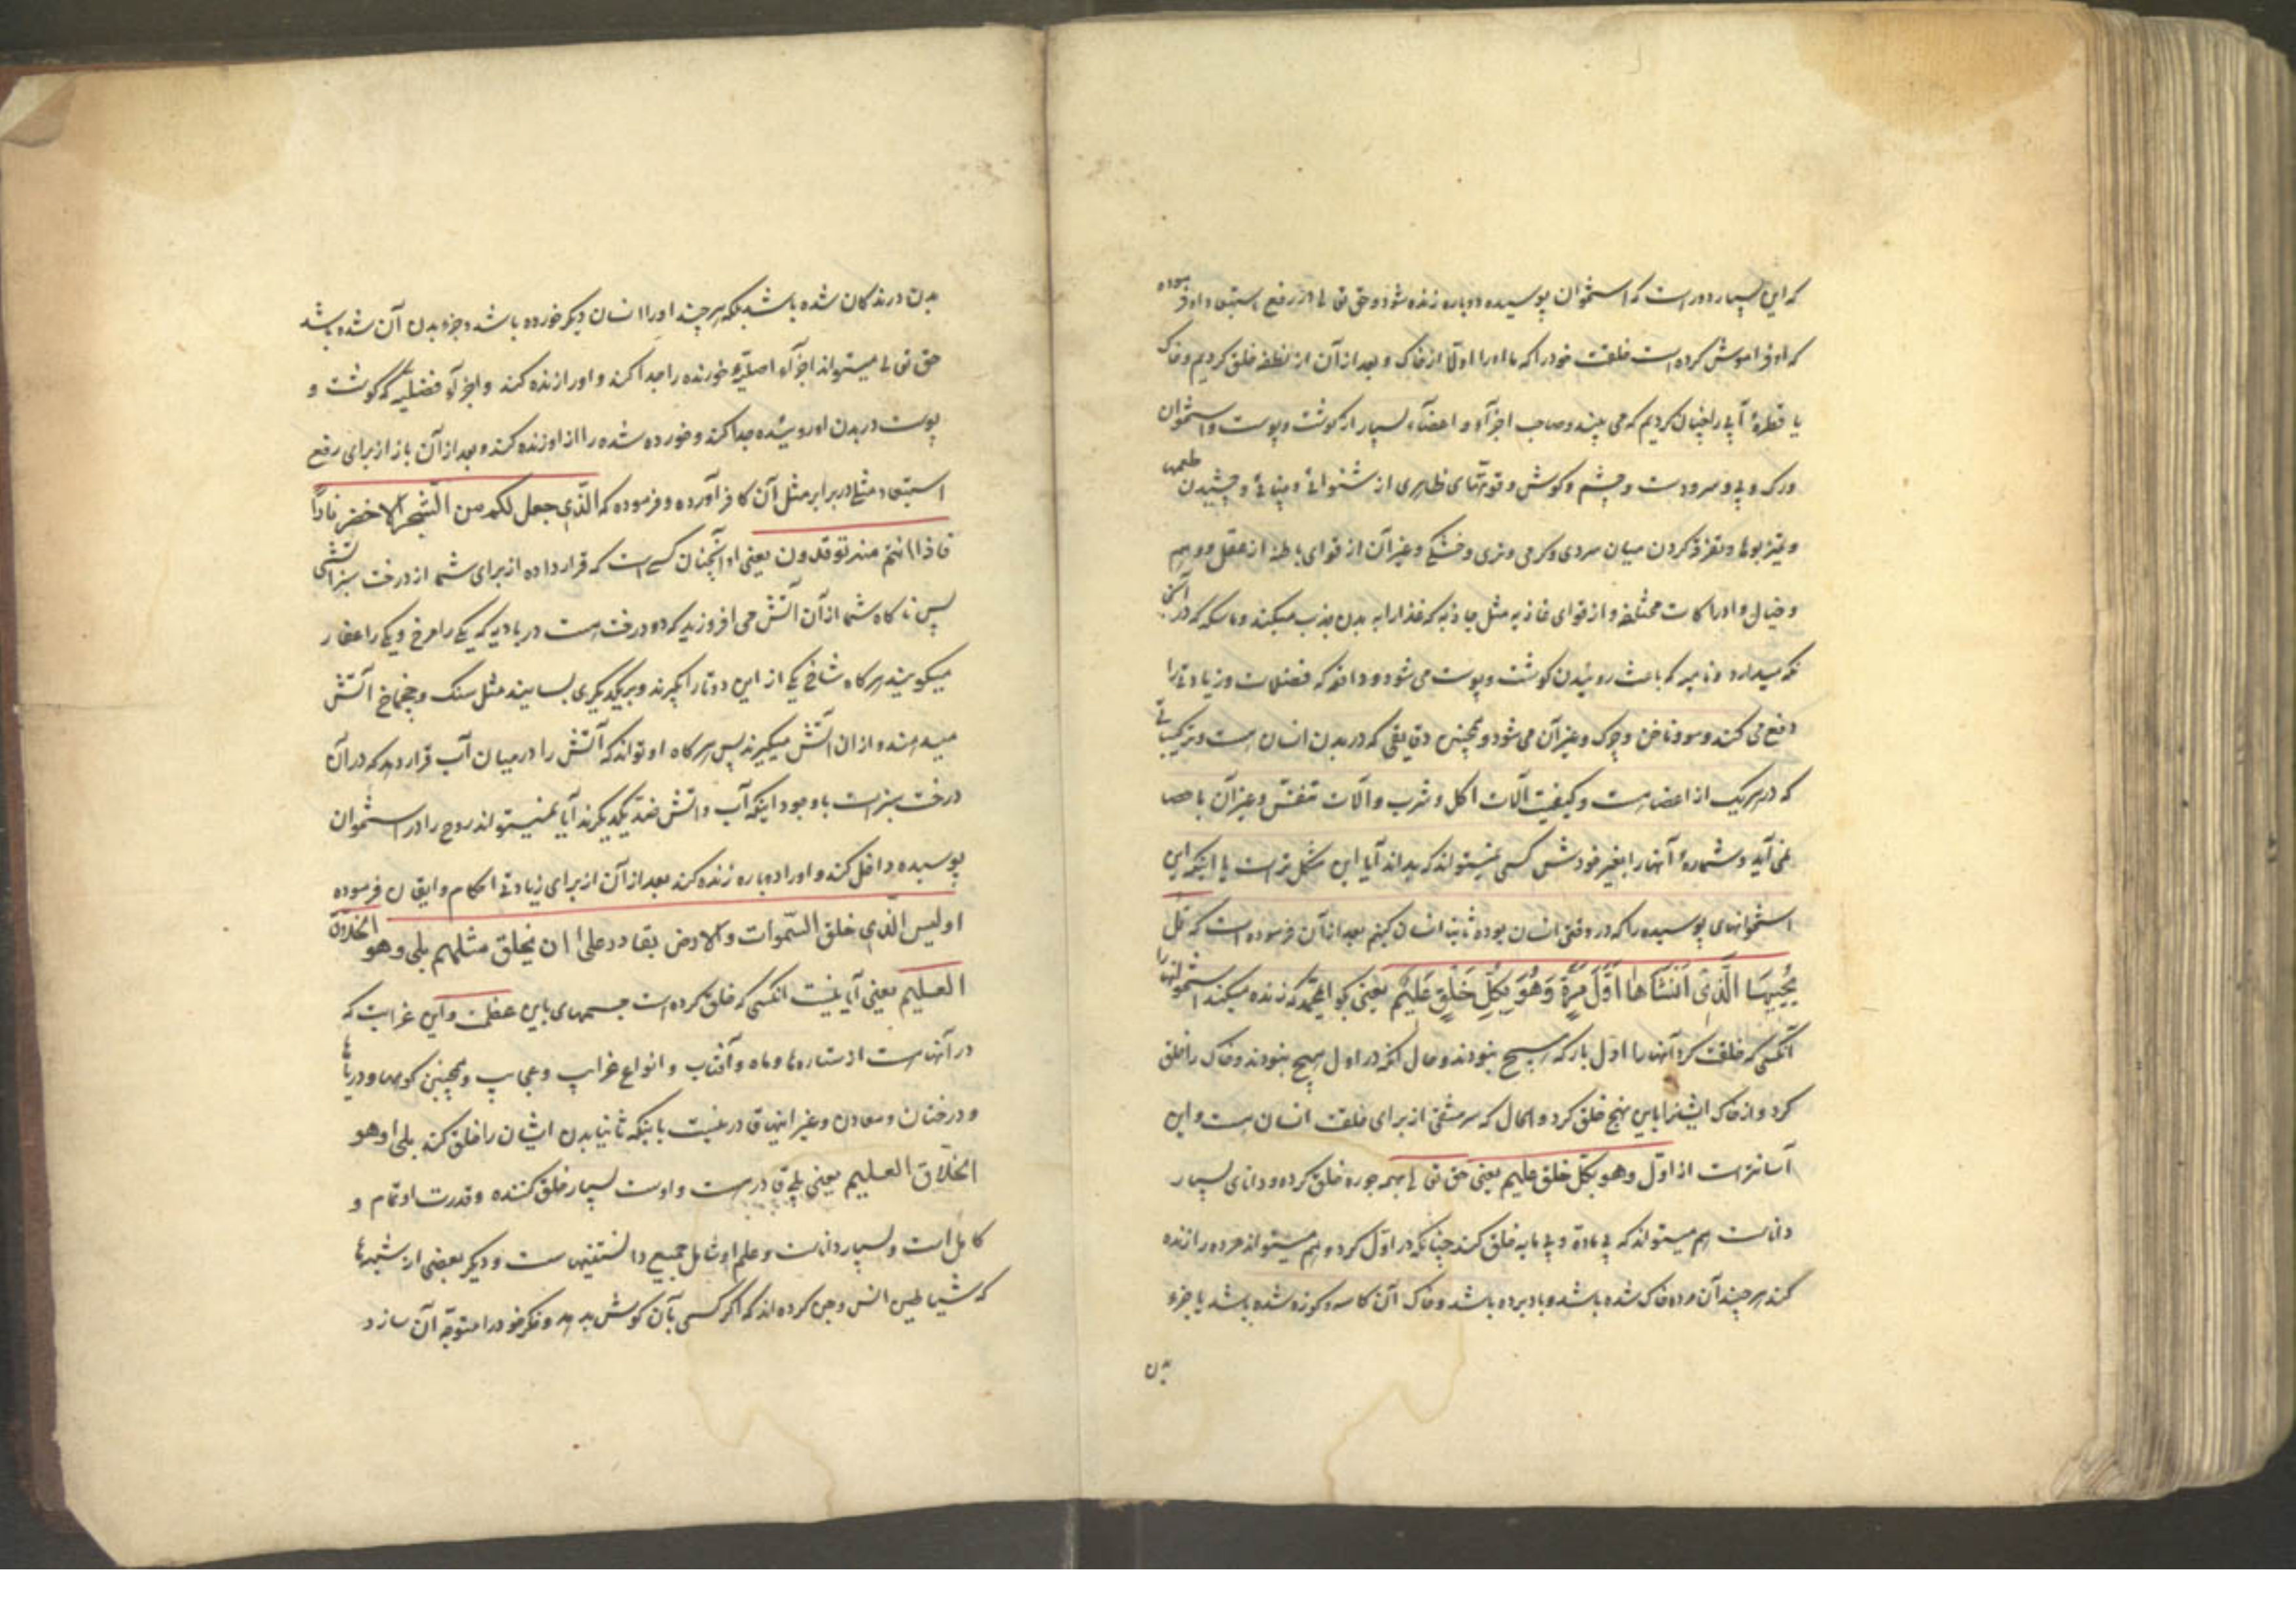 که این بسیار دور است که استخوان پوسیده دوباره زنده شود و حق تعالی از در رفع استبعاد او فرموده
که او فراموش کرده است خلقت خود را که ما او را اولا از خاک و بعد از آن از نطفه خلق کردیم و خاک
یا قطرهٔ آبی را چنان کردیم که می بیند و صاحب اجزآء و اعضآء بسیار از گوشت و پوست و استخوان
و رگ و پی و سر و دست و چشم و گوش و قوتهای ظاهری از شنوائی و بینائی و چشیدن طعمها
و تمیز بوها و تفرقه کردن میان سردی و گرمی و تری و خشکی و غیر آن از قوای باطنه از عقل و وهم
و خیال و ادراکات مختلفه و از قوای غاذیه مثل جاذبه که غذا را به بدن جذب میکند و ماسکه که در آنجا
نگه میدارد و نامیه که باعث روئیدن گوشت و پوست می شود و دافعه که فضلات و زیادتی را
دفع می کند و مو و ناخن و چرک و غیر آن می شود و همچنین دقایقی که در بدن انسان است و ترکیباتی
که در هر یک از اعضا هست و کیفیت آلات اکل و شرب و آلات تنفس و غیر آن باحصا
نمی آید و شمارهٔ آنها را بغیر خودش کسی نمیتواند که بداند آیا این مشکل تر است یا اینکه این
استخوانهای پوسیده را که در وقتی انسان بوده ثانیا انسان کنیم بعد از آن فرموده است که قل
یُحْیِیهَا الَّذِی اَنْشَأَهَا اَوَّلَ مَرَّةٍ وَهُوَ بِکُلِّ خَلْقٍ عَلِیمٌ یعنی بگو ای محمد که زنده میکند استخوانها را
آنکسی که خلقت کرد آنها را اول بار که هیچ نبودند و حال آنکه در اول هیچ نبودند و خاک را خلق
کرد و از خاک ایشانرا باین نهج خلق کرد و الحال که سرمشقی از برای خلقت انسان هست و این
آسانتر است از اول وهو بکل خلق علیم یعنی حق تعالی همه جوره خلق کرده و دانای بسیار
داناست هم میتواند که بی ماده و بی مایه خلق کند چنانکه در اول کرد و هم میتواند مرده را زنده
کند هر چند آن مرده خاک شده باشد و باد برده باشد و خاک آن کاسه و کوزه شده باشد یا جزو
بدن
بدن درندگان شده باشد بلکه هر چند او را انسان دیگر خورده باشد و جزو بدن آن شده باشد
حق تعالی میتواند اجزآء اصلیهٔ خورنده را جدا کند و او را زنده کند و اجزآء فضلیه که گوشت و
پوست در بدن او روئیده جدا کند و خورده شده را از او زنده کند و بعد از آن باز از برای رفع
استبعاد مثلی در برابر مثل آن کافر آورده و فرموده که الّذی جعل لکم من الشّجر الاخضر نارًا
فاذا انتم منه توقدون یعنی او آنچنان کسی است که قرار داده از برای شما از درخت سبز آتشی
پس ناگاه شما از آن آتش می افروزید که دو درخت هست در بادیه که یکی را مرخ و یکی را عفار
میگویند هر گاه شاخ یکی از این دو تا را بگیرند و بر یکدیگری بسایند مثل سنگ و چخماخ آتش
میدهند و از ان آتش میگیرند پس هر گاه او تواند که آتش را در میان آب قرار دهد که در آن
درخت سبز است با وجود اینکه آب و آتش ضد یکدیگرند آیا نمیتواند روح را در استخوان
پوسیده داخل کند و او را دوباره زنده کند بعد از آن از برای زیادتی احکام و ایقان فرموده
اولیس الّذی خلق السّموات والارض بقادر علی ان یخلق مثلهم بلی وهو الخلاق
العلیم یعنی آیا نیست آنکسی که خلق کرده است جسمهای باین عظمت و این غرابت که
در آنهاست از ستاره ها و ماه و آفتاب و انواع غرایب و عجایب و همچنین کوهها و دریاها
و درختان و معادن و غیر اینها قادر نیست باینکه ثانیا بدن ایشان را خلق کند بلی وهو
الخلاق العلیم یعنی بلی قادر است و اوست بسیار خلق کننده و قدرت او تمام و
کامل است و بسیار داناست و علم او شامل جمیع دانستنیهاست و دیگر بعضی از شبهه ها
که شیاطین انس و جن کرده اند که اگر کسی بآن گوش بدهد و فکر خود را متوجه آن سازد